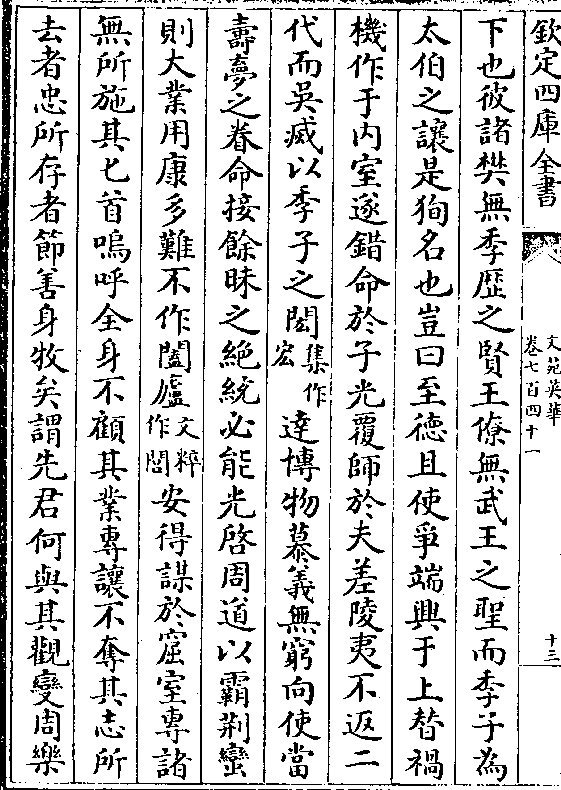 欽定四庫全書
文苑英華
卷七百四十一
十三
下也彼諸樊無季歴之賢王僚無武王之聖而季子為
太伯之讓是狥名也豈曰至徳且使爭端興于上替禍
機作于内室遂錯命於子光覆師於夫差陵夷不返二
代而吳㓕以季子之閎集作宏達博物慕義無窮向使當
壽夢之眷命接餘昧之絶統必能光啓周道以霸荆蠻
則大業用康多難不作闔廬文粹作閭安得謀於窟室專諸
無所施其匕首嗚呼全身不顧其業專讓不奪其志所
去者忠所存者節善身牧矣謂先君何與其觀變周樂